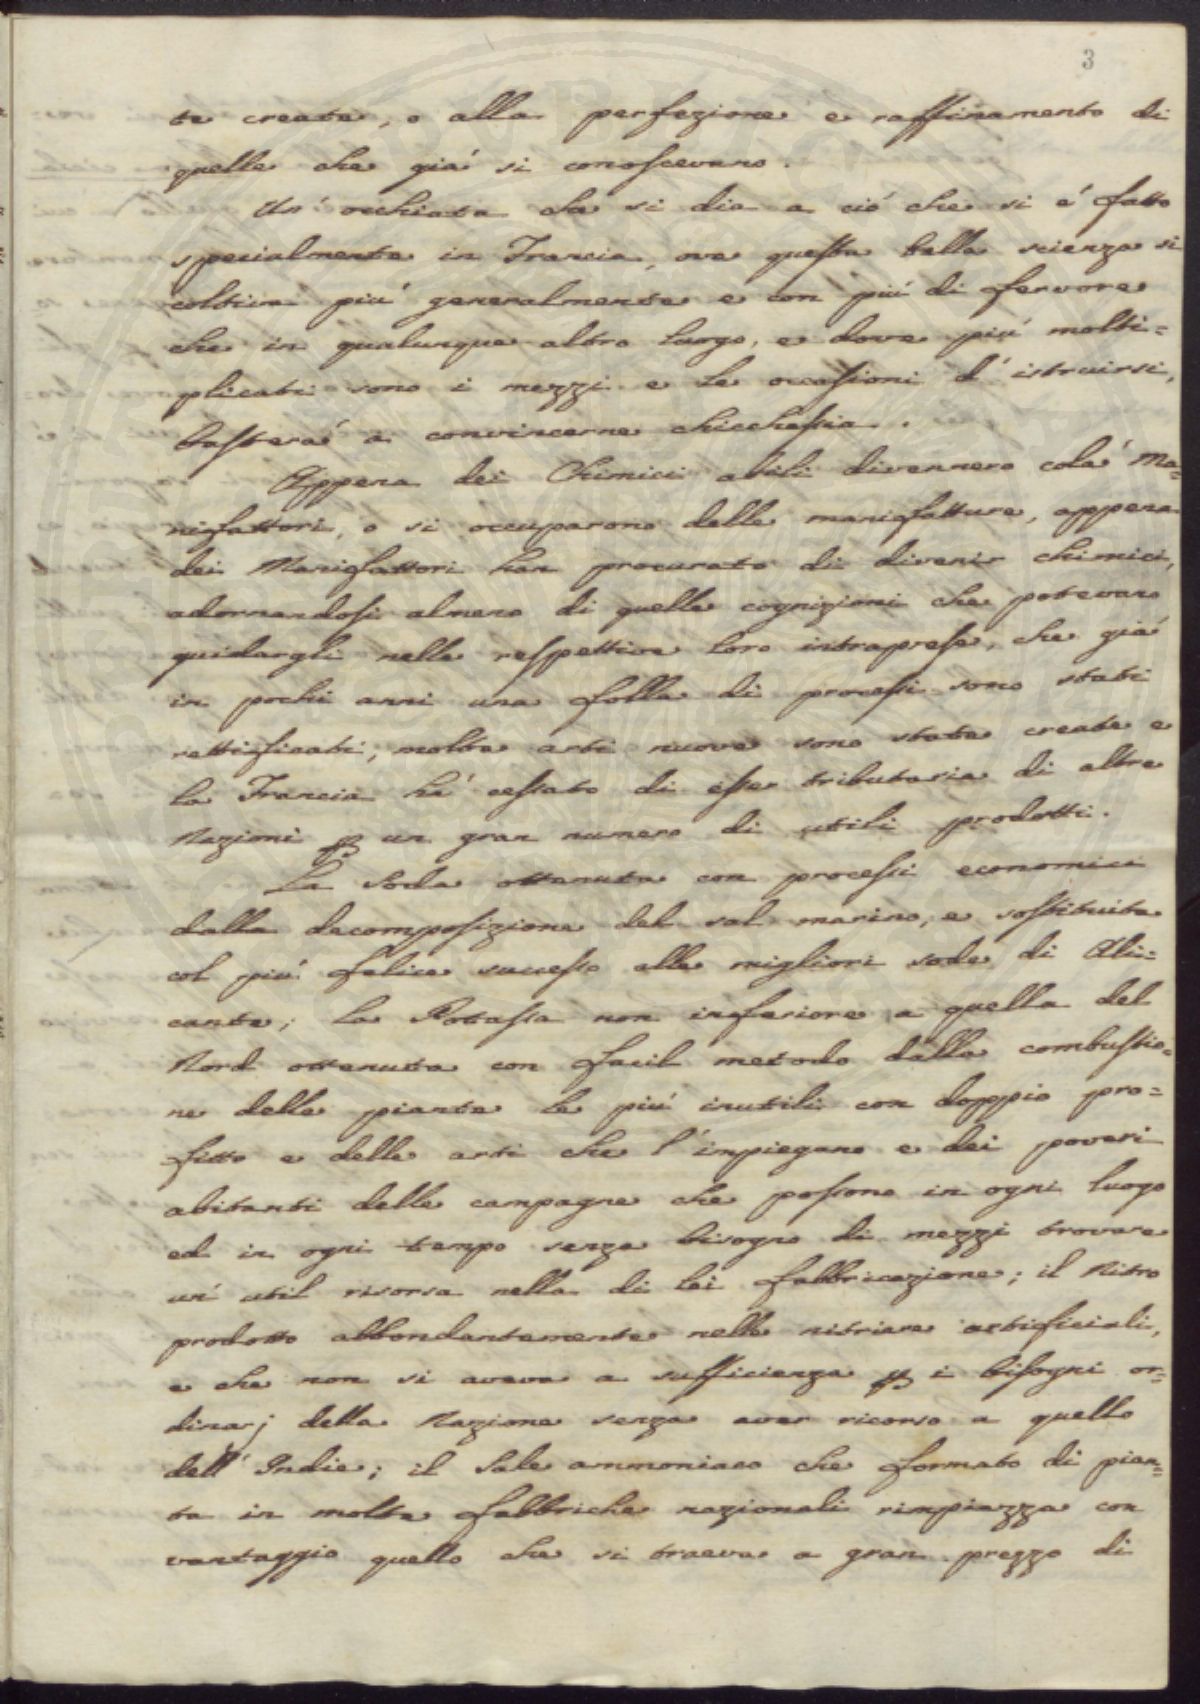 3
te create, o alla perfezione e raffinamento di
quelle che giá si conoscevano.
Un' occhiata che si dia a ció che si é fatto
specialmente in Francia, ove questa bella scienza si
coltiva piú generalmente e con piú di fervore
che in qualunque altro luogo, e dove piú molti=
plicati sono i mezzi e le occasioni d' istruirsi,
basterá a convincerne chicchessia.
Appena dei Chimici abili divennero colá Ma=
nifattori, o si occuparono delle manifatture, appena
dei Manifattori han procurato di divenir chimici,
adornandosi almeno di quelle cognizioni che potevano
guidargli nelle respettive loro intraprese, che giá
in pochi anni una folla di processi sono stati
rettificati; molte arti nuove sono state create e
la Francia há cessato di esser tributaria di altre
Nazioni p un gran numero di utili prodotti.
La Soda ottenuta con processi economici
dalla decomposizione del sal marino, e sostituita
col piú felice successo alle migliori sode di Ali=
cante; la Potassa non inferiore a quella del
Nord ottenuta con facil metodo dalla combustio=
ne delle piante le piú inutili con doppio pro=
fitto e delle arti che l' impiegano e dei poveri
abitanti delle campagne che possono in ogni luogo
ed in ogni tempo senza bisogno di mezzi trovare
un' util risorsa nella di lei fabbricazione; il Nitro
prodotto abbondantemente nelle nitriere artificiali,
e che non si aveva a sufficienza p i bisogni or=
dinarj della Nazione senza aver ricorso a quello
dell' Indie; il Sale ammoniaco che formato di pian=
ta in molte fabbriche nazionali rimpiazza con
vantaggio quello che si traeva a gran prezzo di